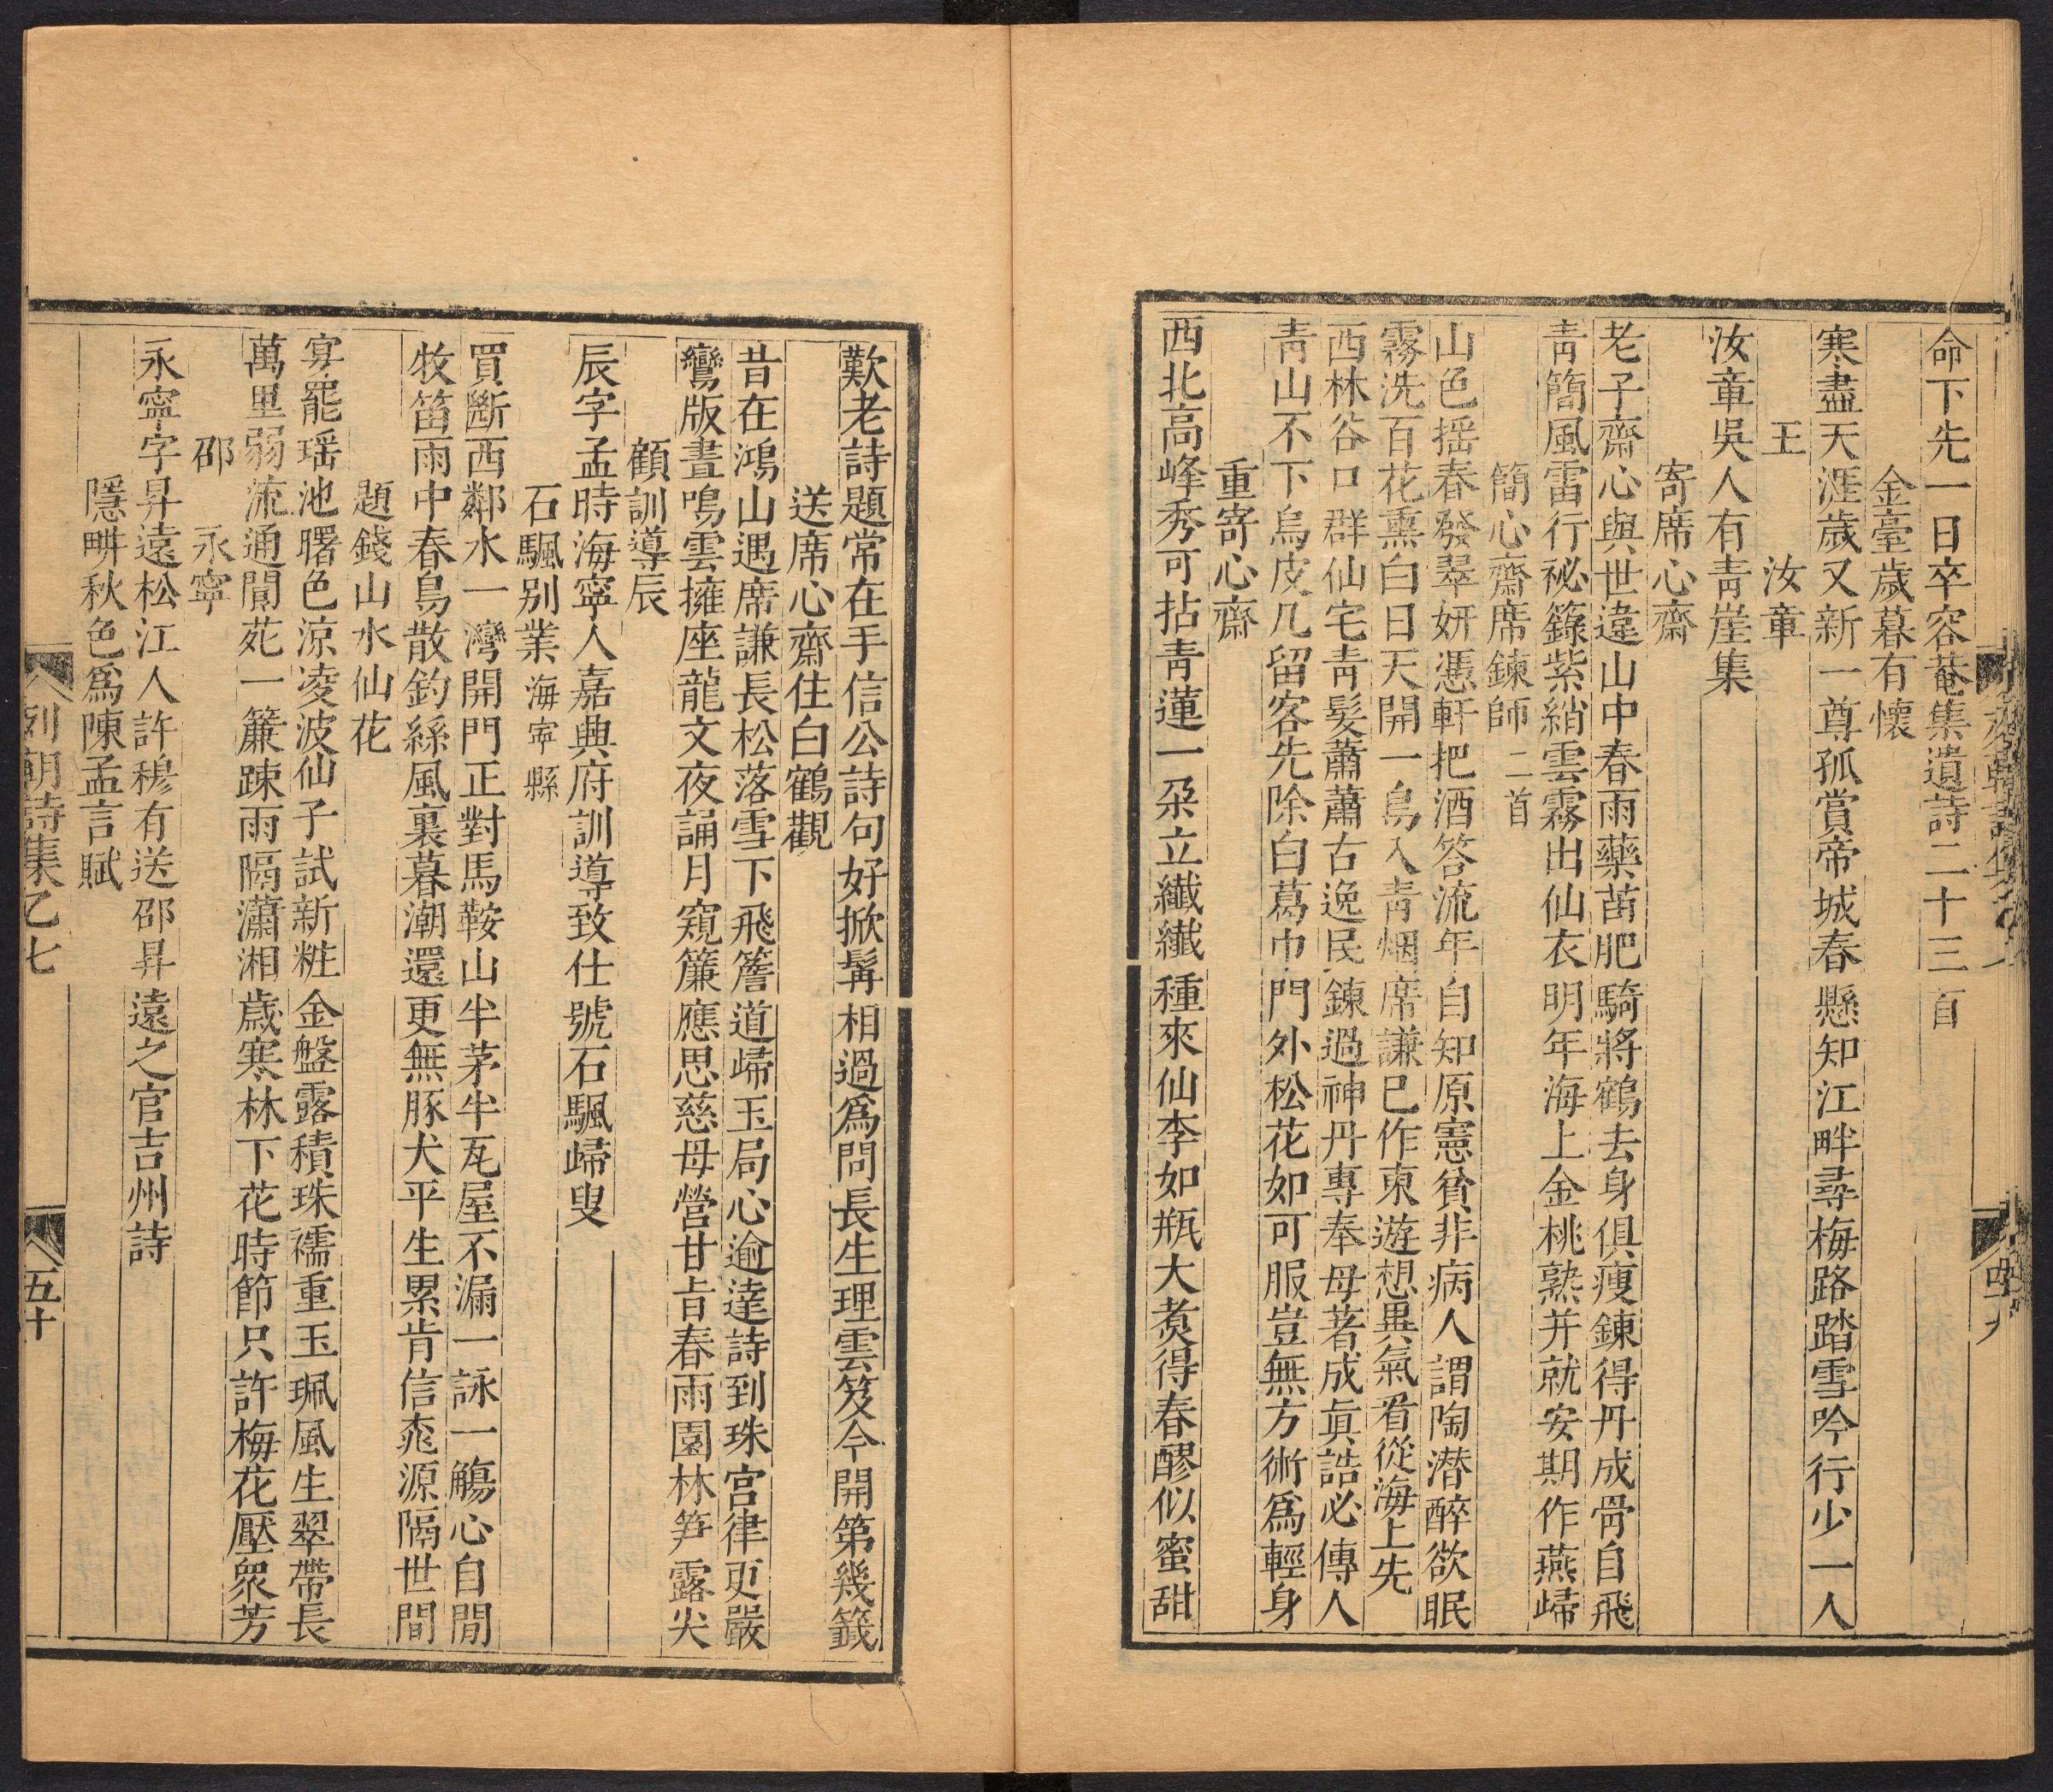 命下先一日卒容菴集遺詩二十三首
金臺歲暮有懷
寒盡天涯歲又新一尊孤賞帝城春懸知江畔尋梅路踏雪吟行少一人
王汝章
汝章吳人有靑崖集
寄席心齋
老子齋心與世違山中春雨藥苗肥騎將鶴去身俱瘦鍊得丹成骨自飛
靑簡風雷行祕籙紫綃雲霧出仙衣明年海上金桃熟并就安期作燕歸
簡心齋席鍊師二首
山色揺春發翠妍憑軒把酒答流年自知原憲貧非病人謂陶潜醉欲眠
霧洗百花熏白日天開一鳥入靑烟席謙已作東遊想異氣看從海上先
西林谷口群仙宅靑髮蕭蕭古逸民鍊過神丹專奉母著成眞誥必傳人
靑山不下烏皮几留客先除白葛巾門外松花如可服豈無方術爲輕身
重寄心齋
西北高峰秀可拈靑蓮一朶立纖纖種來仙李如瓶大煑得春醪似蜜甜
歎老詩題常在手信公詩句好掀髯相過爲問長生理雲笈今開第幾籤
送席心齋住白鶴觀
昔在鴻山遇席謙長松落雪下飛簷道歸玉局心逾達詩到珠宮律更嚴
鸞版晝鳴雲擁座龍文夜誦月窺簾應思慈母營甘旨春雨園林笋露尖
顧訓導辰
辰字孟時海寧人嘉興府訓導致仕號石颿歸叟
石颿別業海寧縣
買斷西鄰水一灣開門正對馬鞍山半茅半瓦屋不漏一詠一觴心自閒
牧笛雨中春鳥散釣絲風裏暮潮還更無豚犬平生累肯信桃源隔世間
題錢山水仙花
宴罷瑶池曙色涼凌波仙子試新粧金盤露積珠襦重玉珮風生翠帶長
萬里弱流通閬苑一簾踈雨隔瀟湘歲寒林下花時節只許梅花壓衆芳
邵永寧
永寧字昇遠松江人許穆有送邵昇遠之官吉州詩
隱畊秋色爲陳孟言賦
列朝詩集乙七
五十